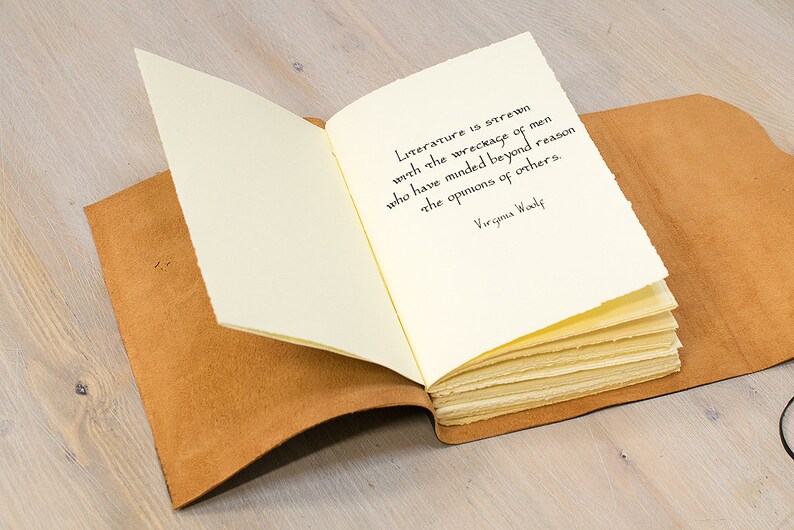 Literature is strewn
with the wreckage of men
who have minded beyond reason
the opinions of others.
Virginia Woolf